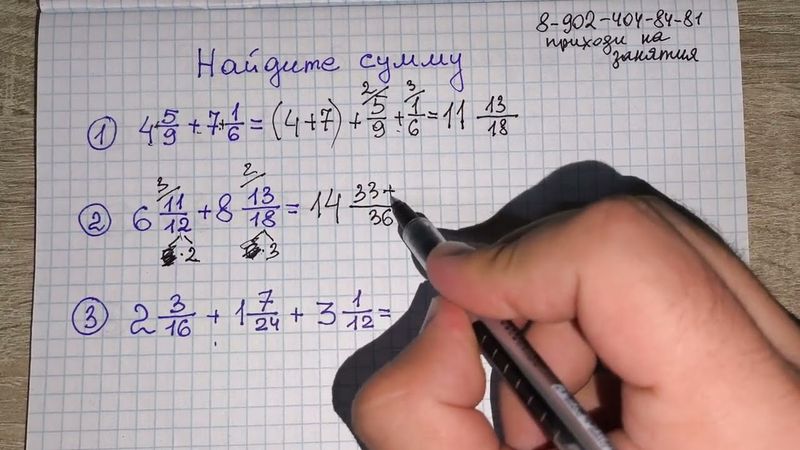 8-902-404-84-81
приходи на
занятия
Найдите сумму
① 4 5/9 + 7 1/6 = (4+7) + 5/9 + 1/6 = 11 13/18
2 3
② 6 11/12 + 8 13/18 = 14 33+/36
3 2
·2 ·3
③ 2 3/16 + 1 7/24 + 3 1/12 =